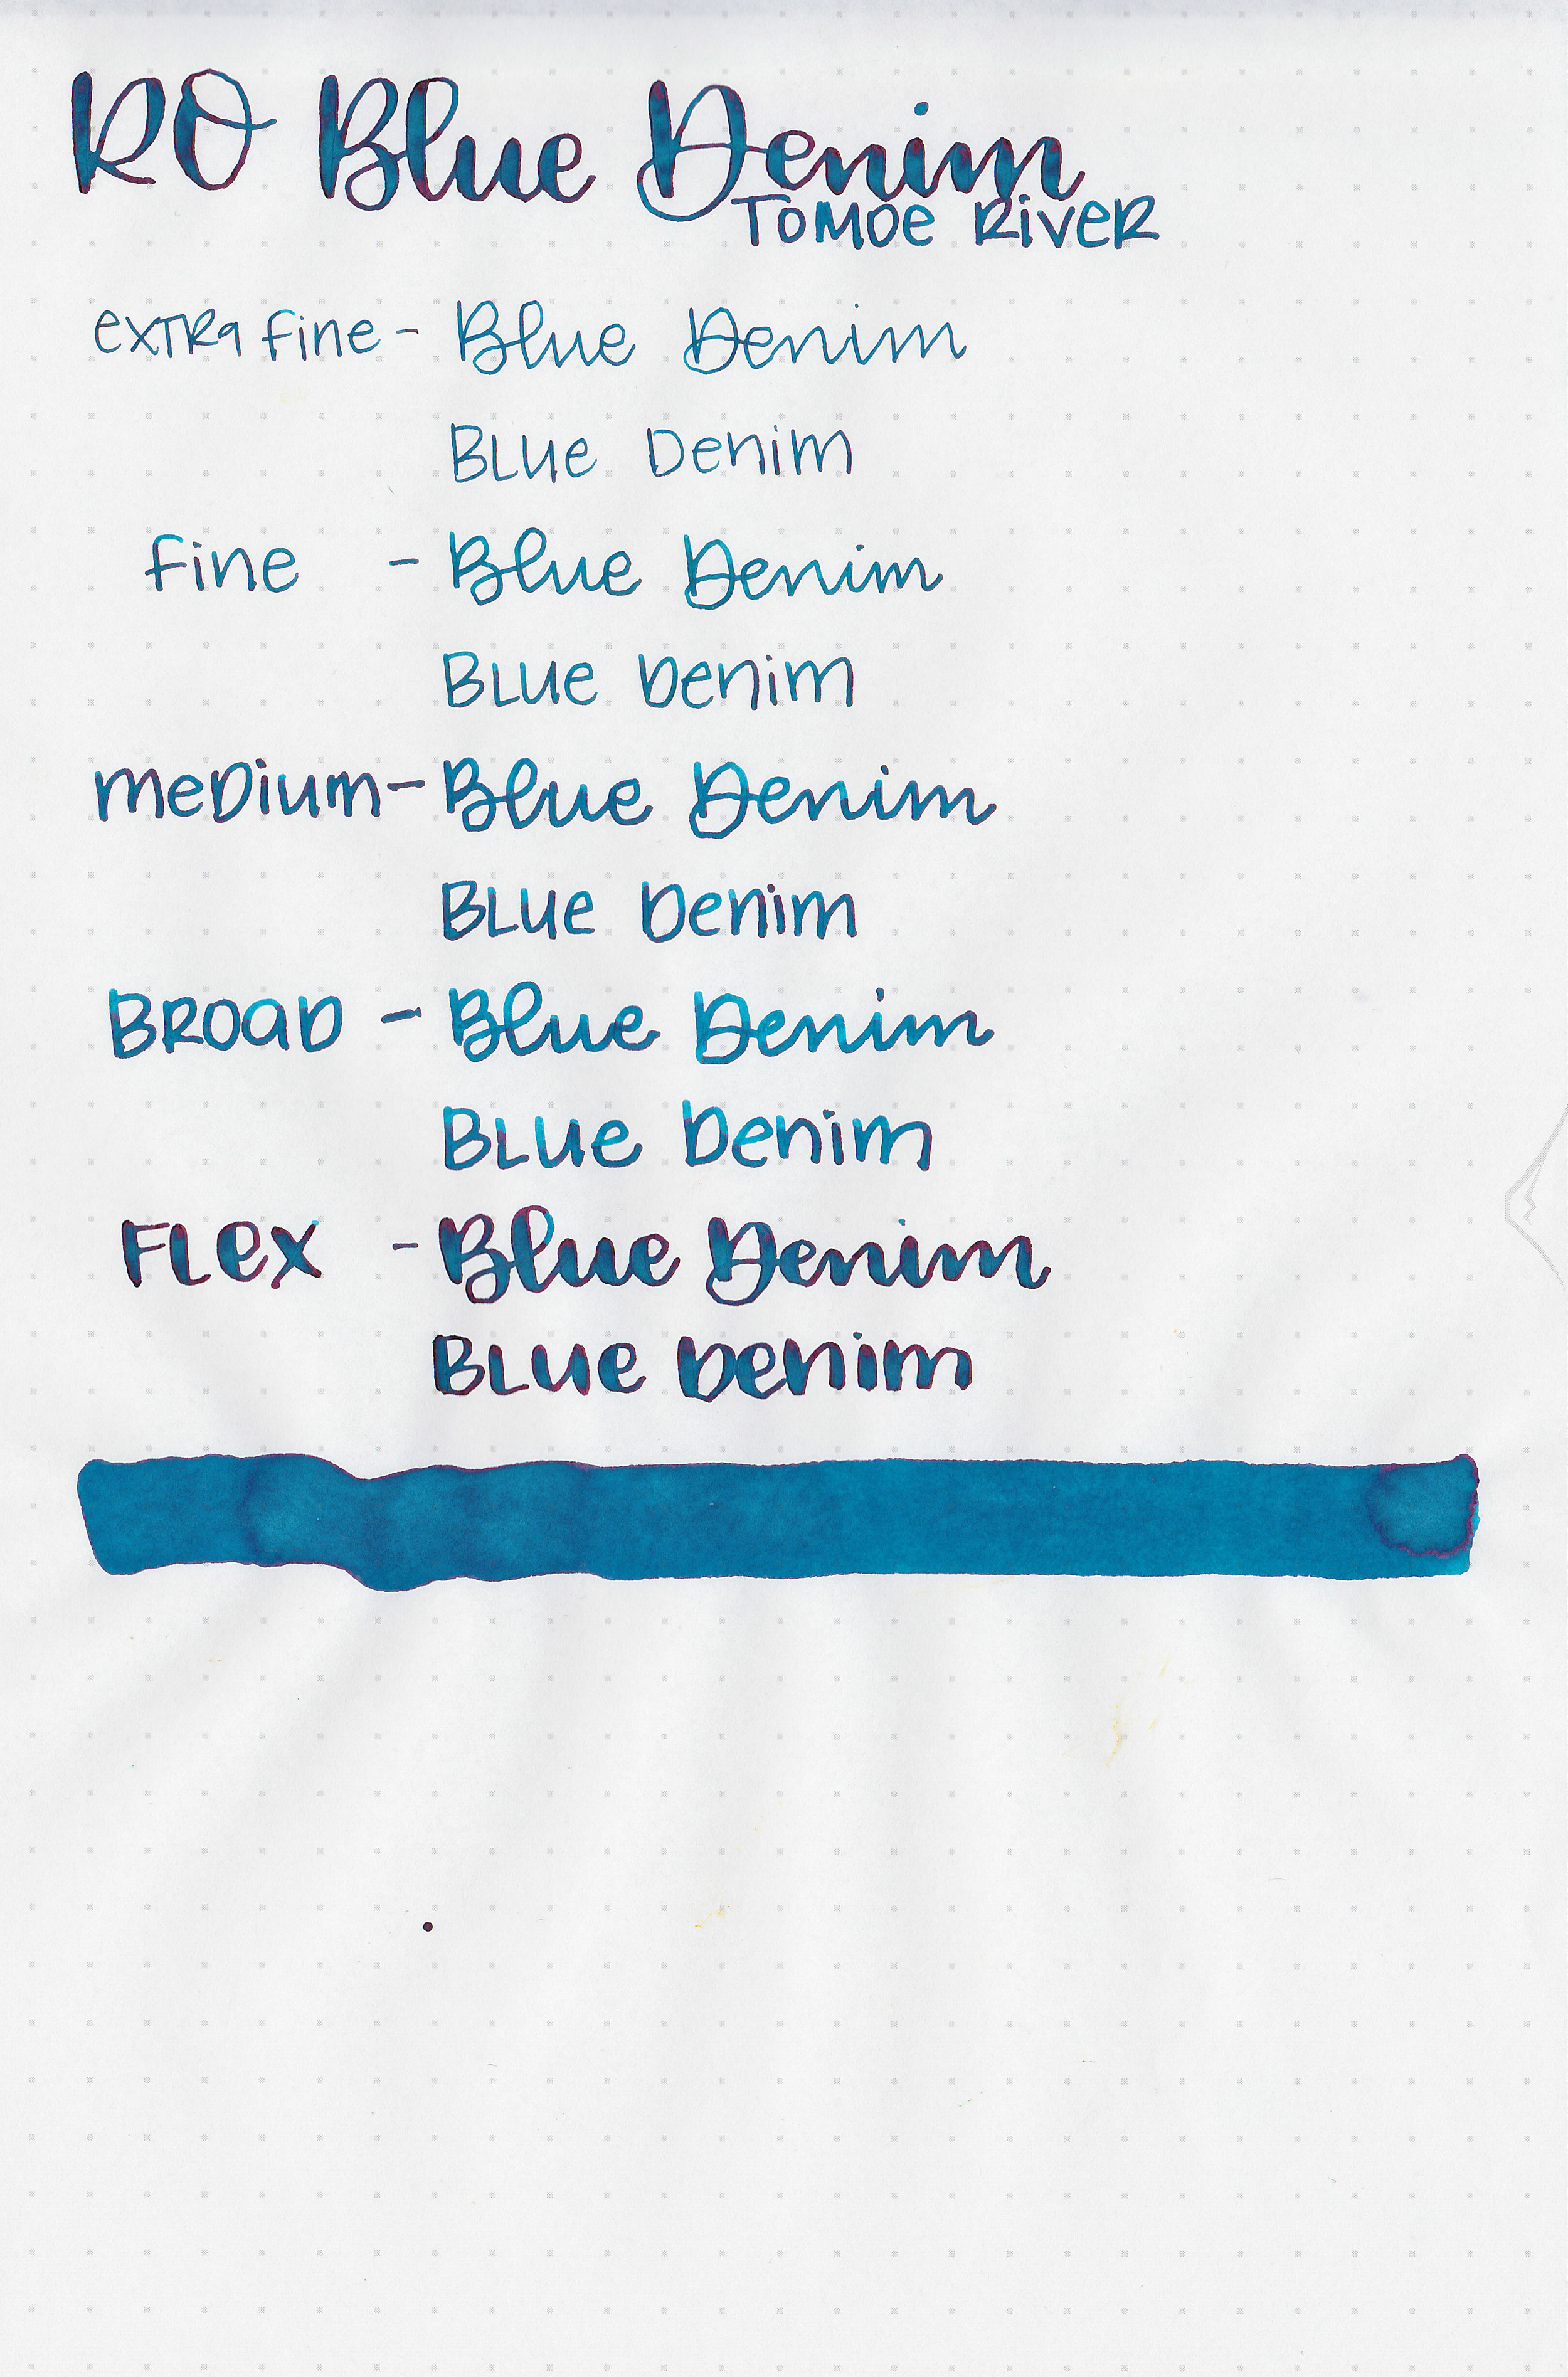 RO Blue Denim
TOMOE RiVeR
exTRa fine - Blue Denim
BLue Denim
fine - Blue Denim
BLue Denim
meDium - Blue Denim
BLue Denim
BROaD - Blue Denim
BLue Denim
FLex - Blue Denim
BLue Denim